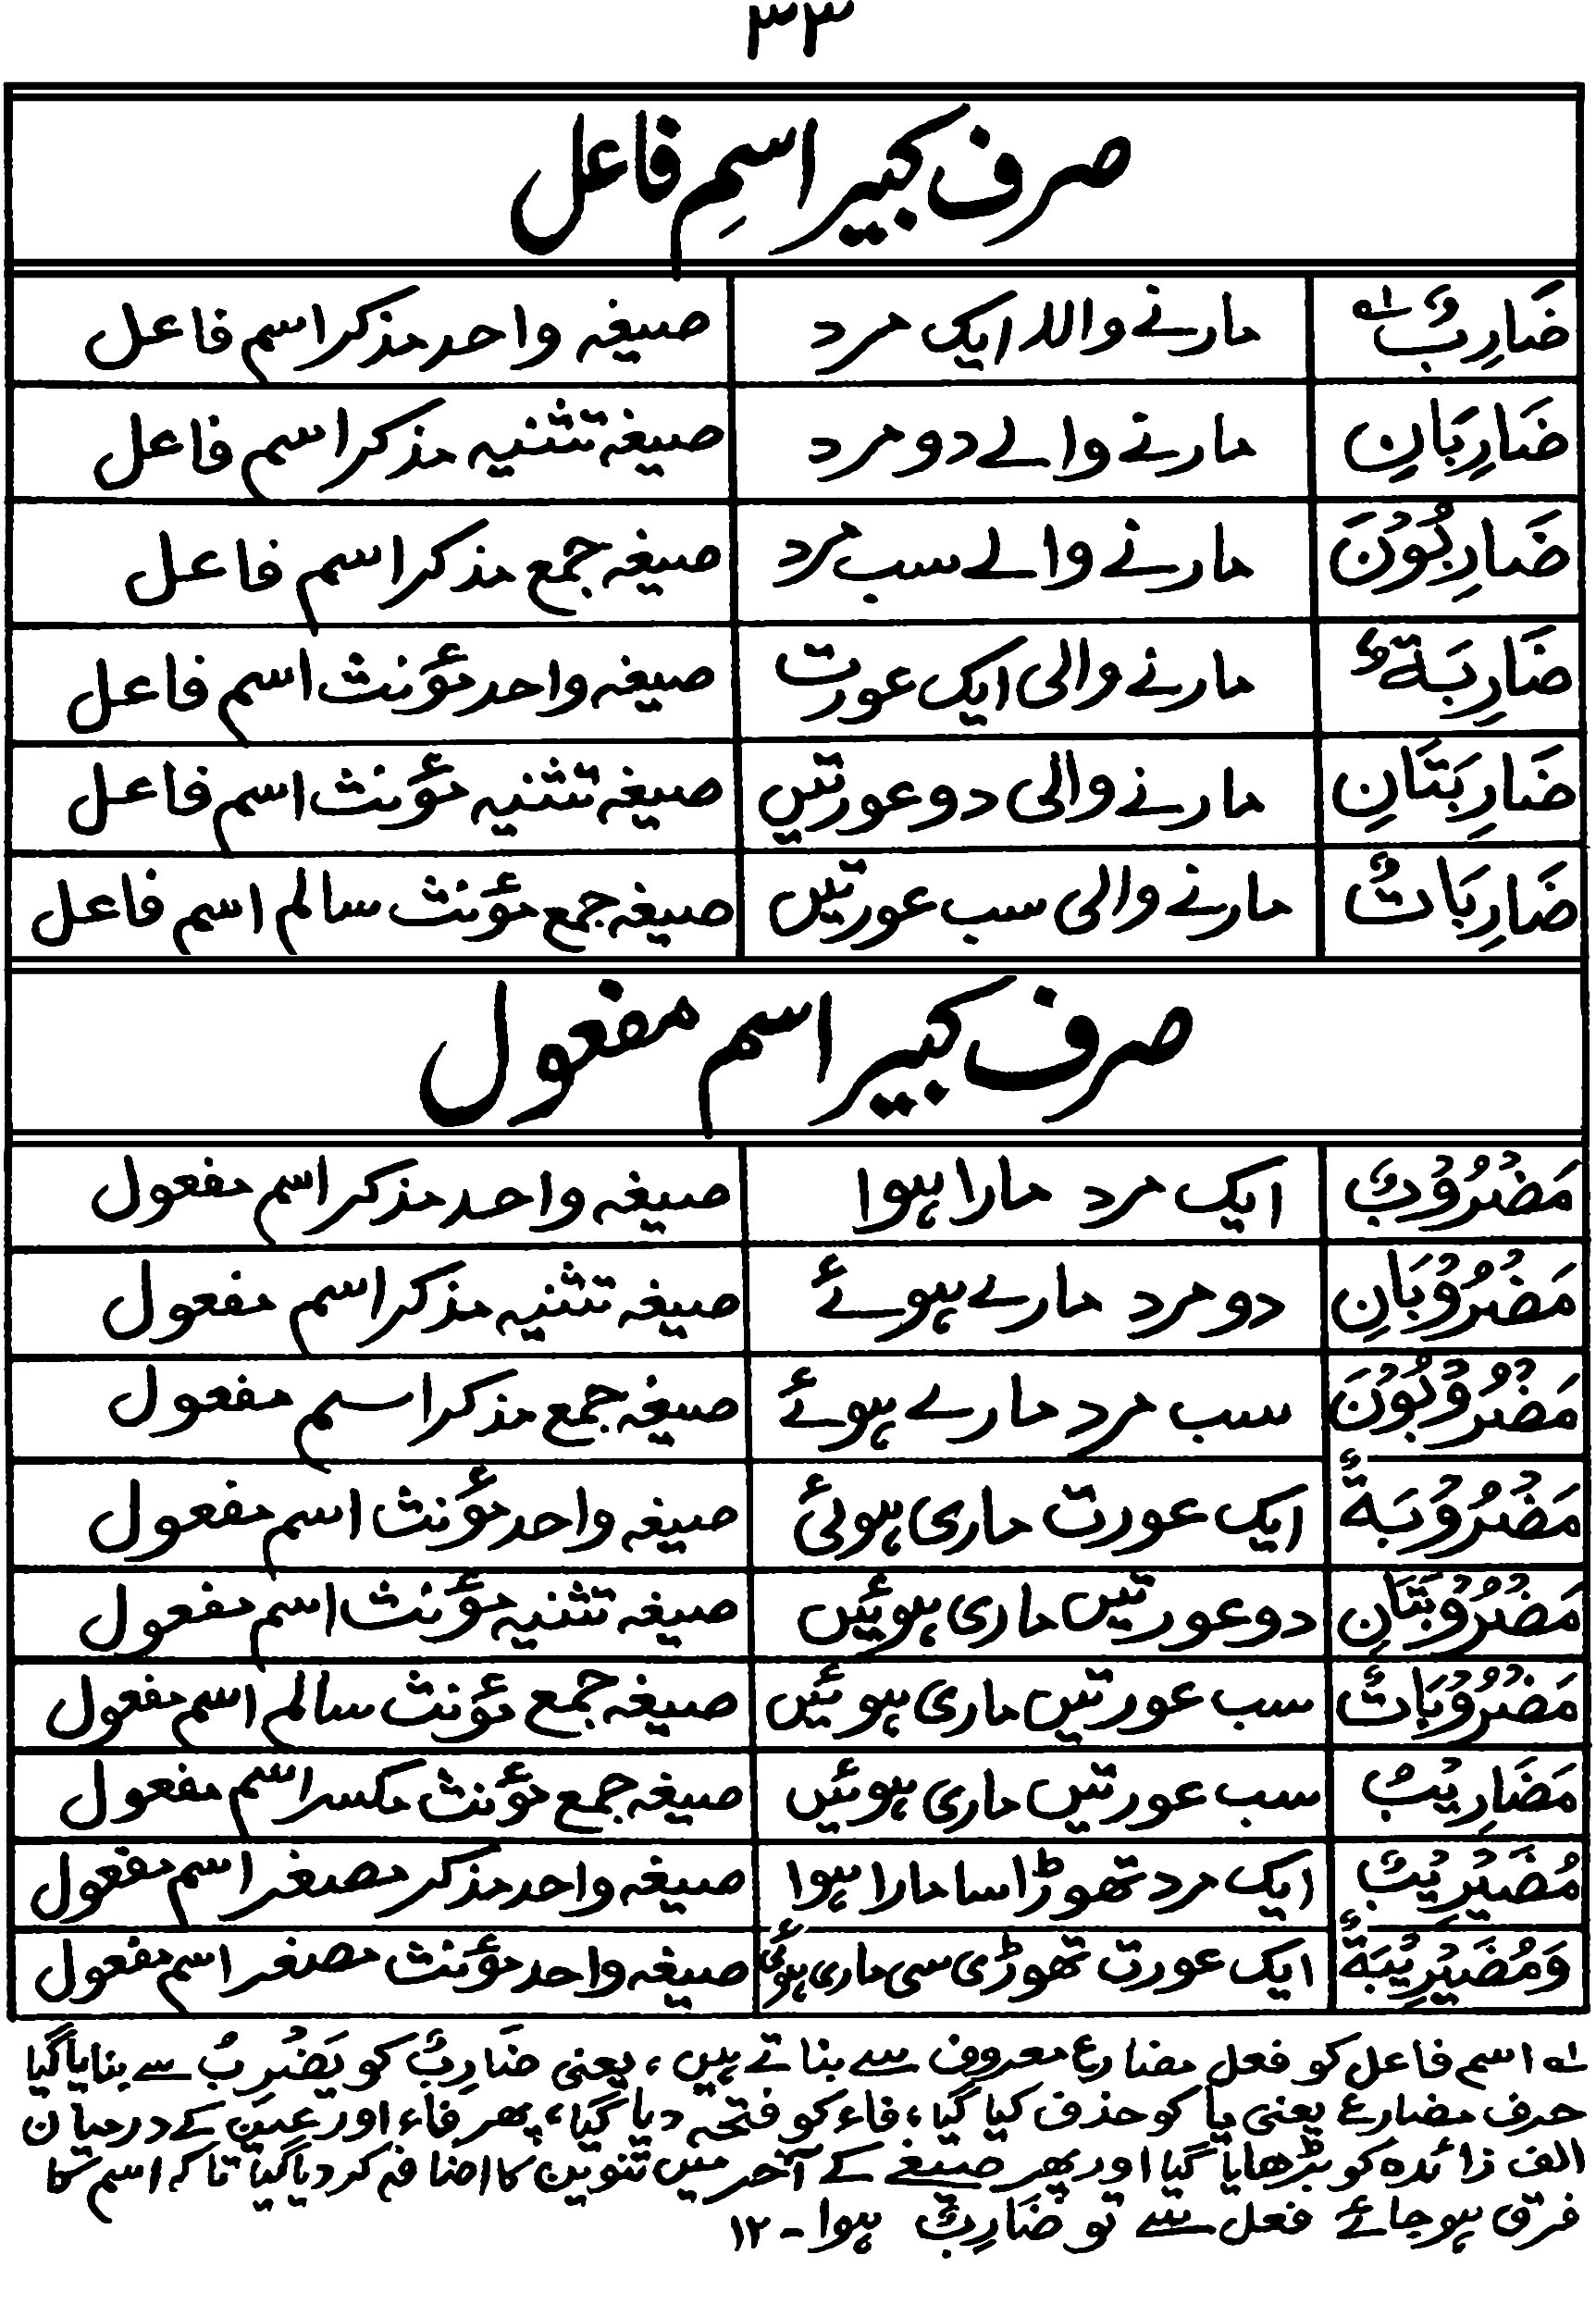 ۳۳
صرف کبیر اسمِ فاعل
ضَارِبٌ ؎۱ مارنے والا ایک مرد صیغہ واحد مذکر اسم فاعل
ضَارِبَانِ مارنے والے دو مرد صیغہ تثنیہ مذکر اسم فاعل
ضَارِبُوْنَ مارنے والے سب مرد صیغہ جمع مذکر اسم فاعل
ضَارِبَةٌ مارنے والی ایک عورت صیغہ واحد مؤنث اسم فاعل
ضَارِبَتَانِ مارنے والی دو عورتیں صیغہ تثنیہ مؤنث اسم فاعل
ضَارِبَاتٌ مارنے والی سب عورتیں صیغہ جمع مؤنث سالم اسم فاعل
صرف کبیر اسم مفعول
مَضْرُوْبٌ ایک مرد مارا ہوا صیغہ واحد مذکر اسم مفعول
مَضْرُوْبَانِ دو مرد مارے ہوئے صیغہ تثنیہ مذکر اسم مفعول
مَضْرُوْبُوْنَ سب مرد مارے ہوئے صیغہ جمع مذکر اسم مفعول
مَضْرُوْبَةٌ ایک عورت ماری ہوئی صیغہ واحد مؤنث اسم مفعول
مَضْرُوْبَتَانِ دو عورتیں ماری ہوئیں صیغہ تثنیہ مؤنث اسم مفعول
مَضْرُوْبَاتٌ سب عورتیں ماری ہوئیں صیغہ جمع مؤنث سالم اسم مفعول
مَضَارِيْبُ سب عورتیں ماری ہوئیں صیغہ جمع مؤنث مکسر اسم مفعول
مُضَيْرِيْبٌ ایک مرد تھوڑا سا مارا ہوا صیغہ واحد مذکر مصغر اسم مفعول
وَمُضَيْرِيْبَةٌ ایک عورت تھوڑی سی ماری ہوئی صیغہ واحد مؤنث مصغر اسم مفعول
؎۱ اسم فاعل کو فعل مضارع معروف سے بناتے ہیں، یعنی ضَارِبٌ کو یَضْرِبُ سے بنایا گیا
حرف مضارع یعنی یا کو حذف کیا گیا، فاء کو فتحہ دیا گیا، پھر فاء اور عین کے درمیان
الف زائدہ کو بڑھایا گیا اور پھر صیغے کے آخر میں تنوین کا اضافہ کر دیا گیا تاکہ اسم کا
فرق ہو جائے فعل سے تو ضَارِبٌ ہوا - ۱۲